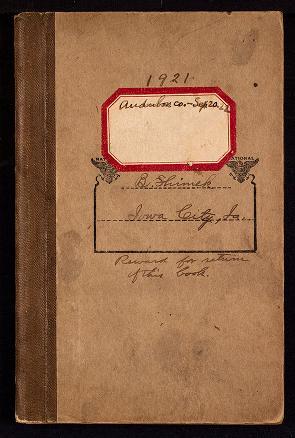 1921
Audubon co. - Sep 20, 22
NATIONAL
B. Shimek
Iowa City, Ia.
Reward for return
of this book.